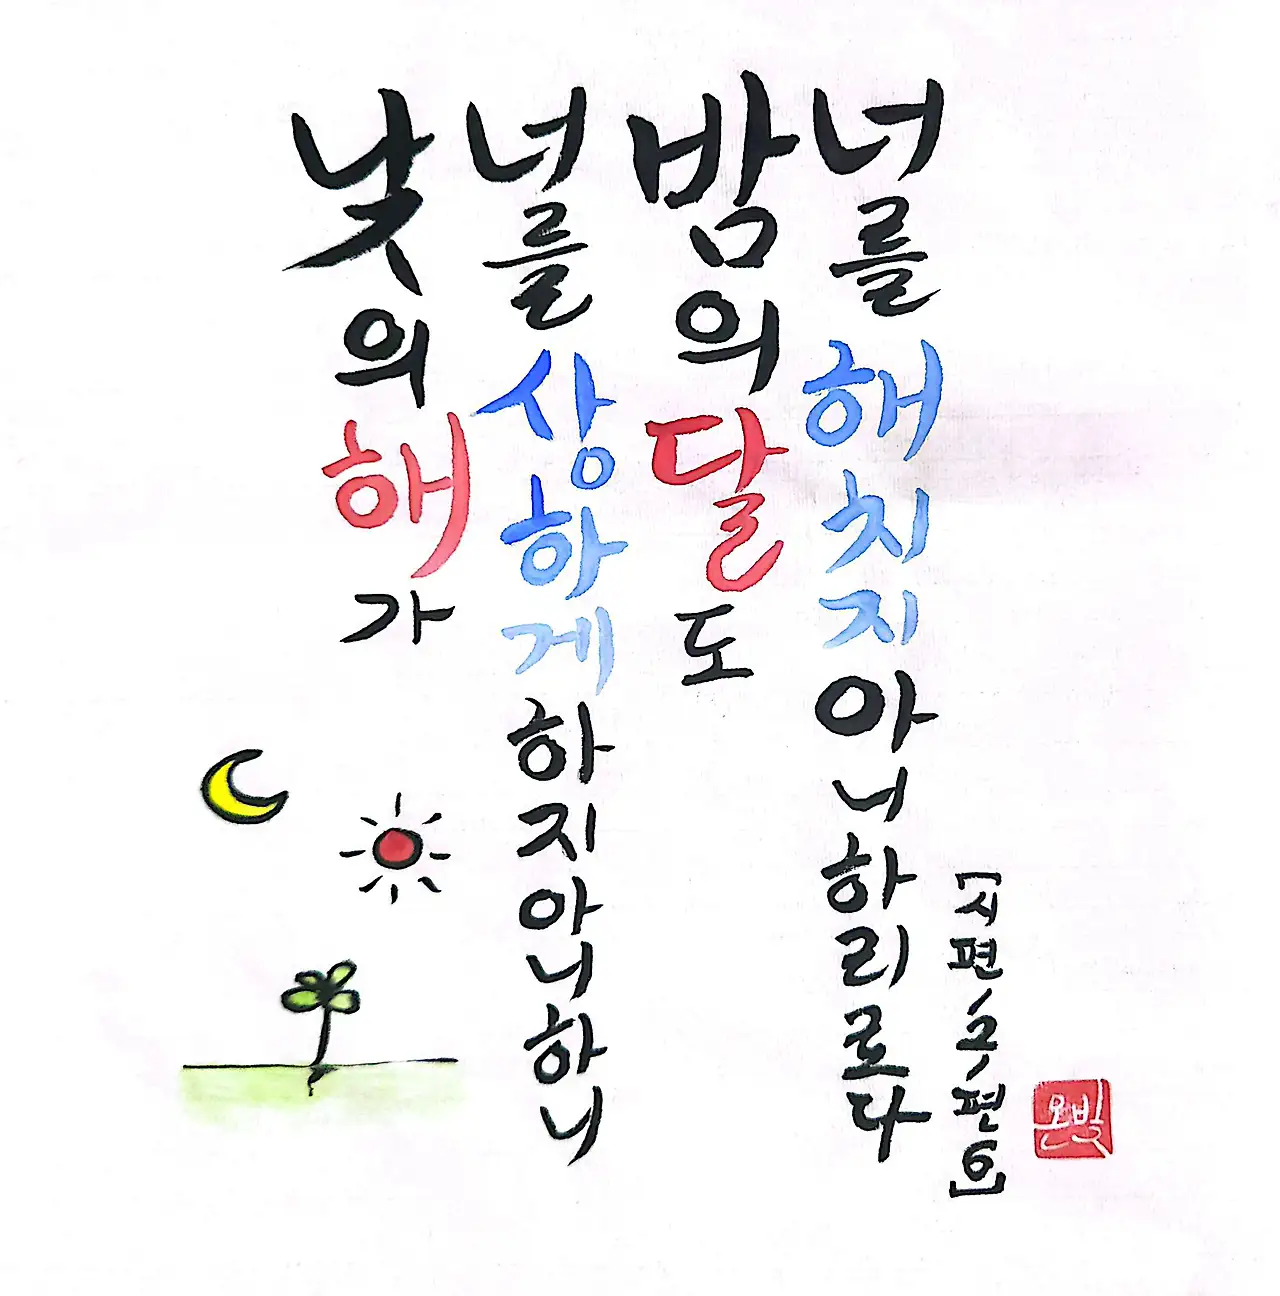 낮의 해가
너를 상하게 하지 아니하니
밤의 달도
너를 해치지 아니하리로다
[시편121편6]
온빛